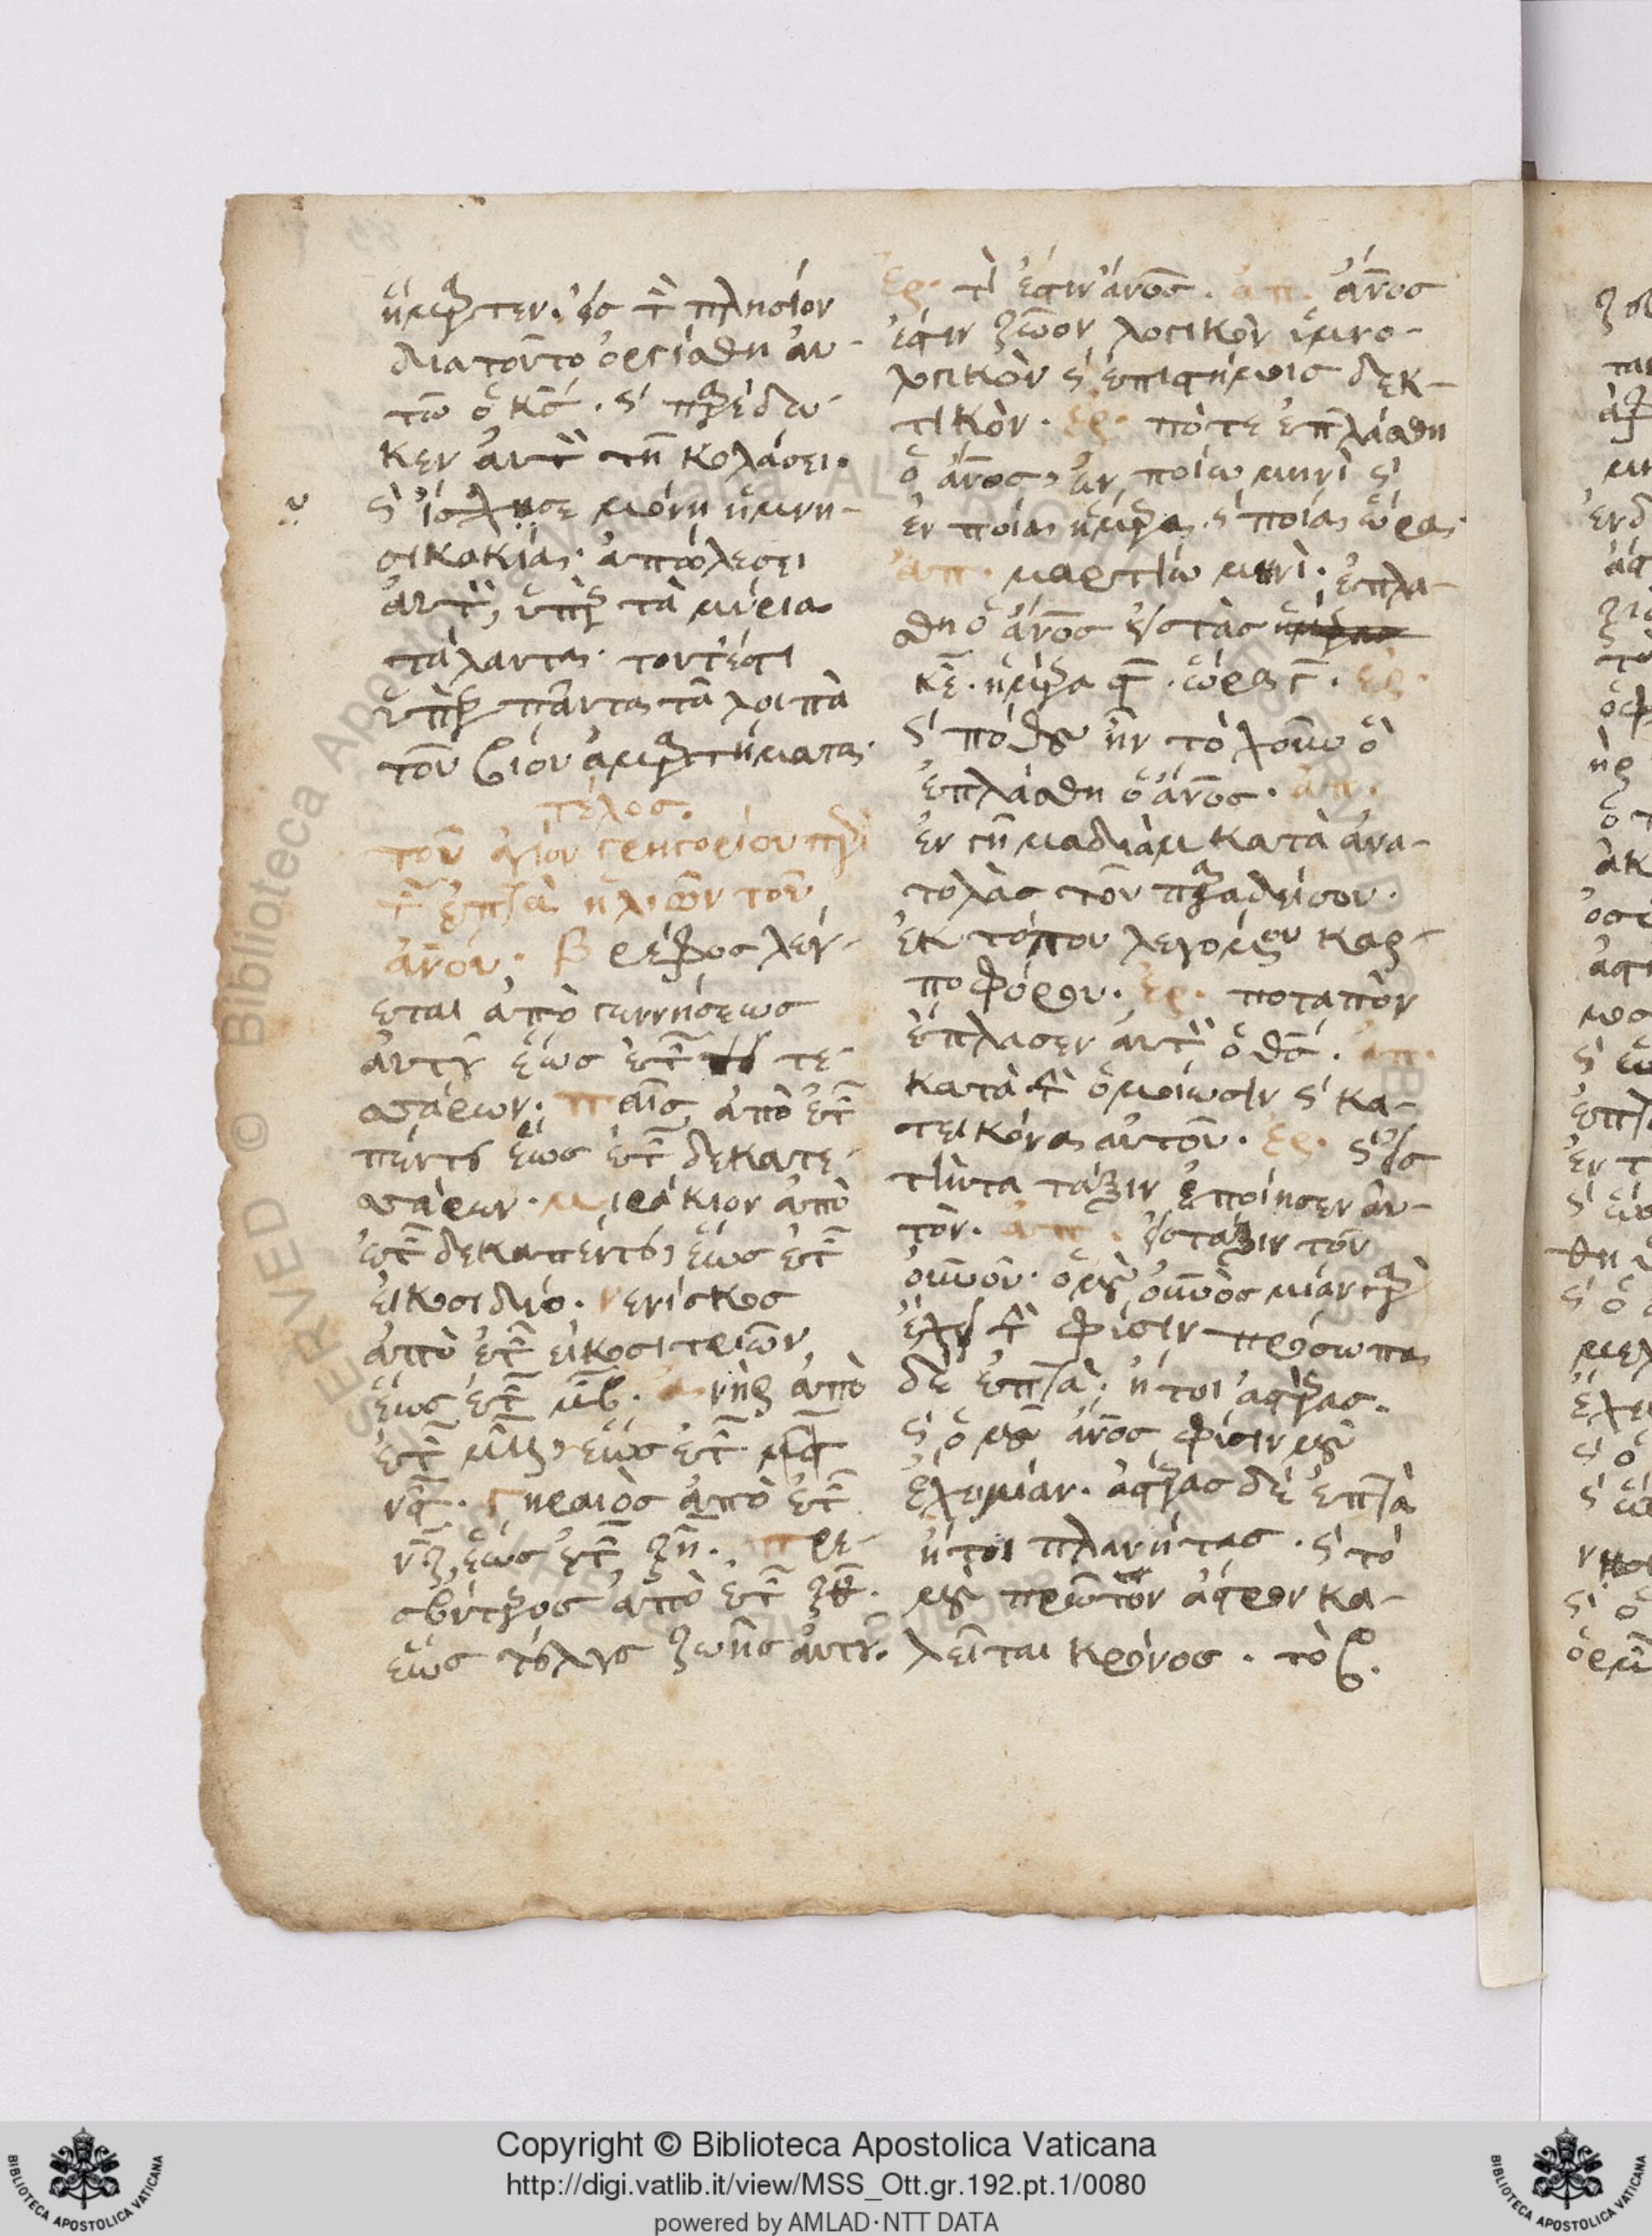 ἥμαρτεν εἰς τὸν πλησίον
διατοῦτο ὀργίσθη αὐ-
τῶ ὁ κς. καὶ παρέδω-
κεν αὐτὸν τῆ κολάσει.
καὶ ἴσχυσε μόνη ἡ μνη-
σικακία. ἀπώλεσει
αὐτὸν, ὑπὲρ τὰ μύρια
τάλαντα. τουτέστι
ὑπὲρ πάντα τὰ λοιπὰ
τοῦ βίου ἁμαρτήματα.
τέλος.
τοῦ ἁγίου γρηγορίου περὶ
τῶν ἑπτὰ ἡλικιῶν τοῦ
ἀνου. Βρέφος λέγ-
εται ἀπὸ γεννήσεως
αὐτοῦ ἕως ἐτῶν τε-
σσάρων. παῖς ἀπὸ ἐτῶν
πέντε ἕως ἐτῶν δεκατε-
σσάρων. μειράκιον ἀπὸ
ἐτῶν δεκαπέντε, ἕως ἐτῶν
εἰκοσιδύο. νενίσκος
ἀπὸ ἐτῶν εἰκοσιτριῶν,
ἕως ἐτῶν μβ. ἀνὴρ ἀπὸ
ἐτῶν ἕως ἐτῶν
νϛ. γηραιὸς ἀπὸ ἐτῶν
νζ, ἕως ἐτῶν ξη. πρε-
σβύτερος ἀπὸ ἐτῶν
ἕως τέλους ζωῆς αὐτοῦ.
ἐρ. τί ἐστιν ἄνος. ἀπ. ἄνος
ἐστιν ζῶον λογικὸν ὑμνο-
λογικὸν καὶ ἐπιστήμης δεκ-
τικόν. ἐρ. πότε ἐπλάσθη
ὁ ἄνος, ἐν ποίω μηνὶ καὶ
ἐν ποία ἡμέρα, καὶ ποία ὥρα.
ἀπ. μαρτίω μηνὶ. ἐπλά-
σθη ὁ ἄνος εἰς τὰς ἡμέρας
κε. ἡμέρα ϛ. ὥρα γ. ἐρ.
καὶ πόθεν ἦν τὸ χοῦν ὃ
ἐπλάσθη ὁ ἄνος. ἀπ.
ἐν γῆ μαδιὰμ κατὰ ἀνα-
τολὰς τοῦ παραδείσου.
ἐκ τόπου λεγομένου καρ-
ποφόρου. ἐρ. ποταπὸν
ἔπλασεν αὐτὸν ὁ θς. ἀπ.
κατὰ τὴν ὁμοίωσιν καὶ κα-
τεικόνα αὐτοῦ. ἐρ. καὶ εἰς
τίντα τάξιν ἐποίησεν αὐ-
τόν. ἀπ. εἰς τάξιν τοῦ
οὐνοῦ. ὁ μὲν οὐνὸς μίαν γὰρ
ἔχει τὴν φύσιν πρόσωπα
δὲ ἑπτὰ. ἤτοι ἀστέρας.
καὶ ὁ μὲν ἄνος φύσιν μὲν
ἔχει μίαν. ἀστέρας δὲ ἑπτὰ
ἤτοι πλανήτας. καὶ τὸ
μὲν πρῶτον ἄστρον κα-
λεῖται κρόνος. τὸ β.
Copyright © Biblioteca Apostolica Vaticana
http://digi.vatlib.it/view/MSS_Ott.gr.192.pt.1/0080
powered by AMLAD·NTT DATA